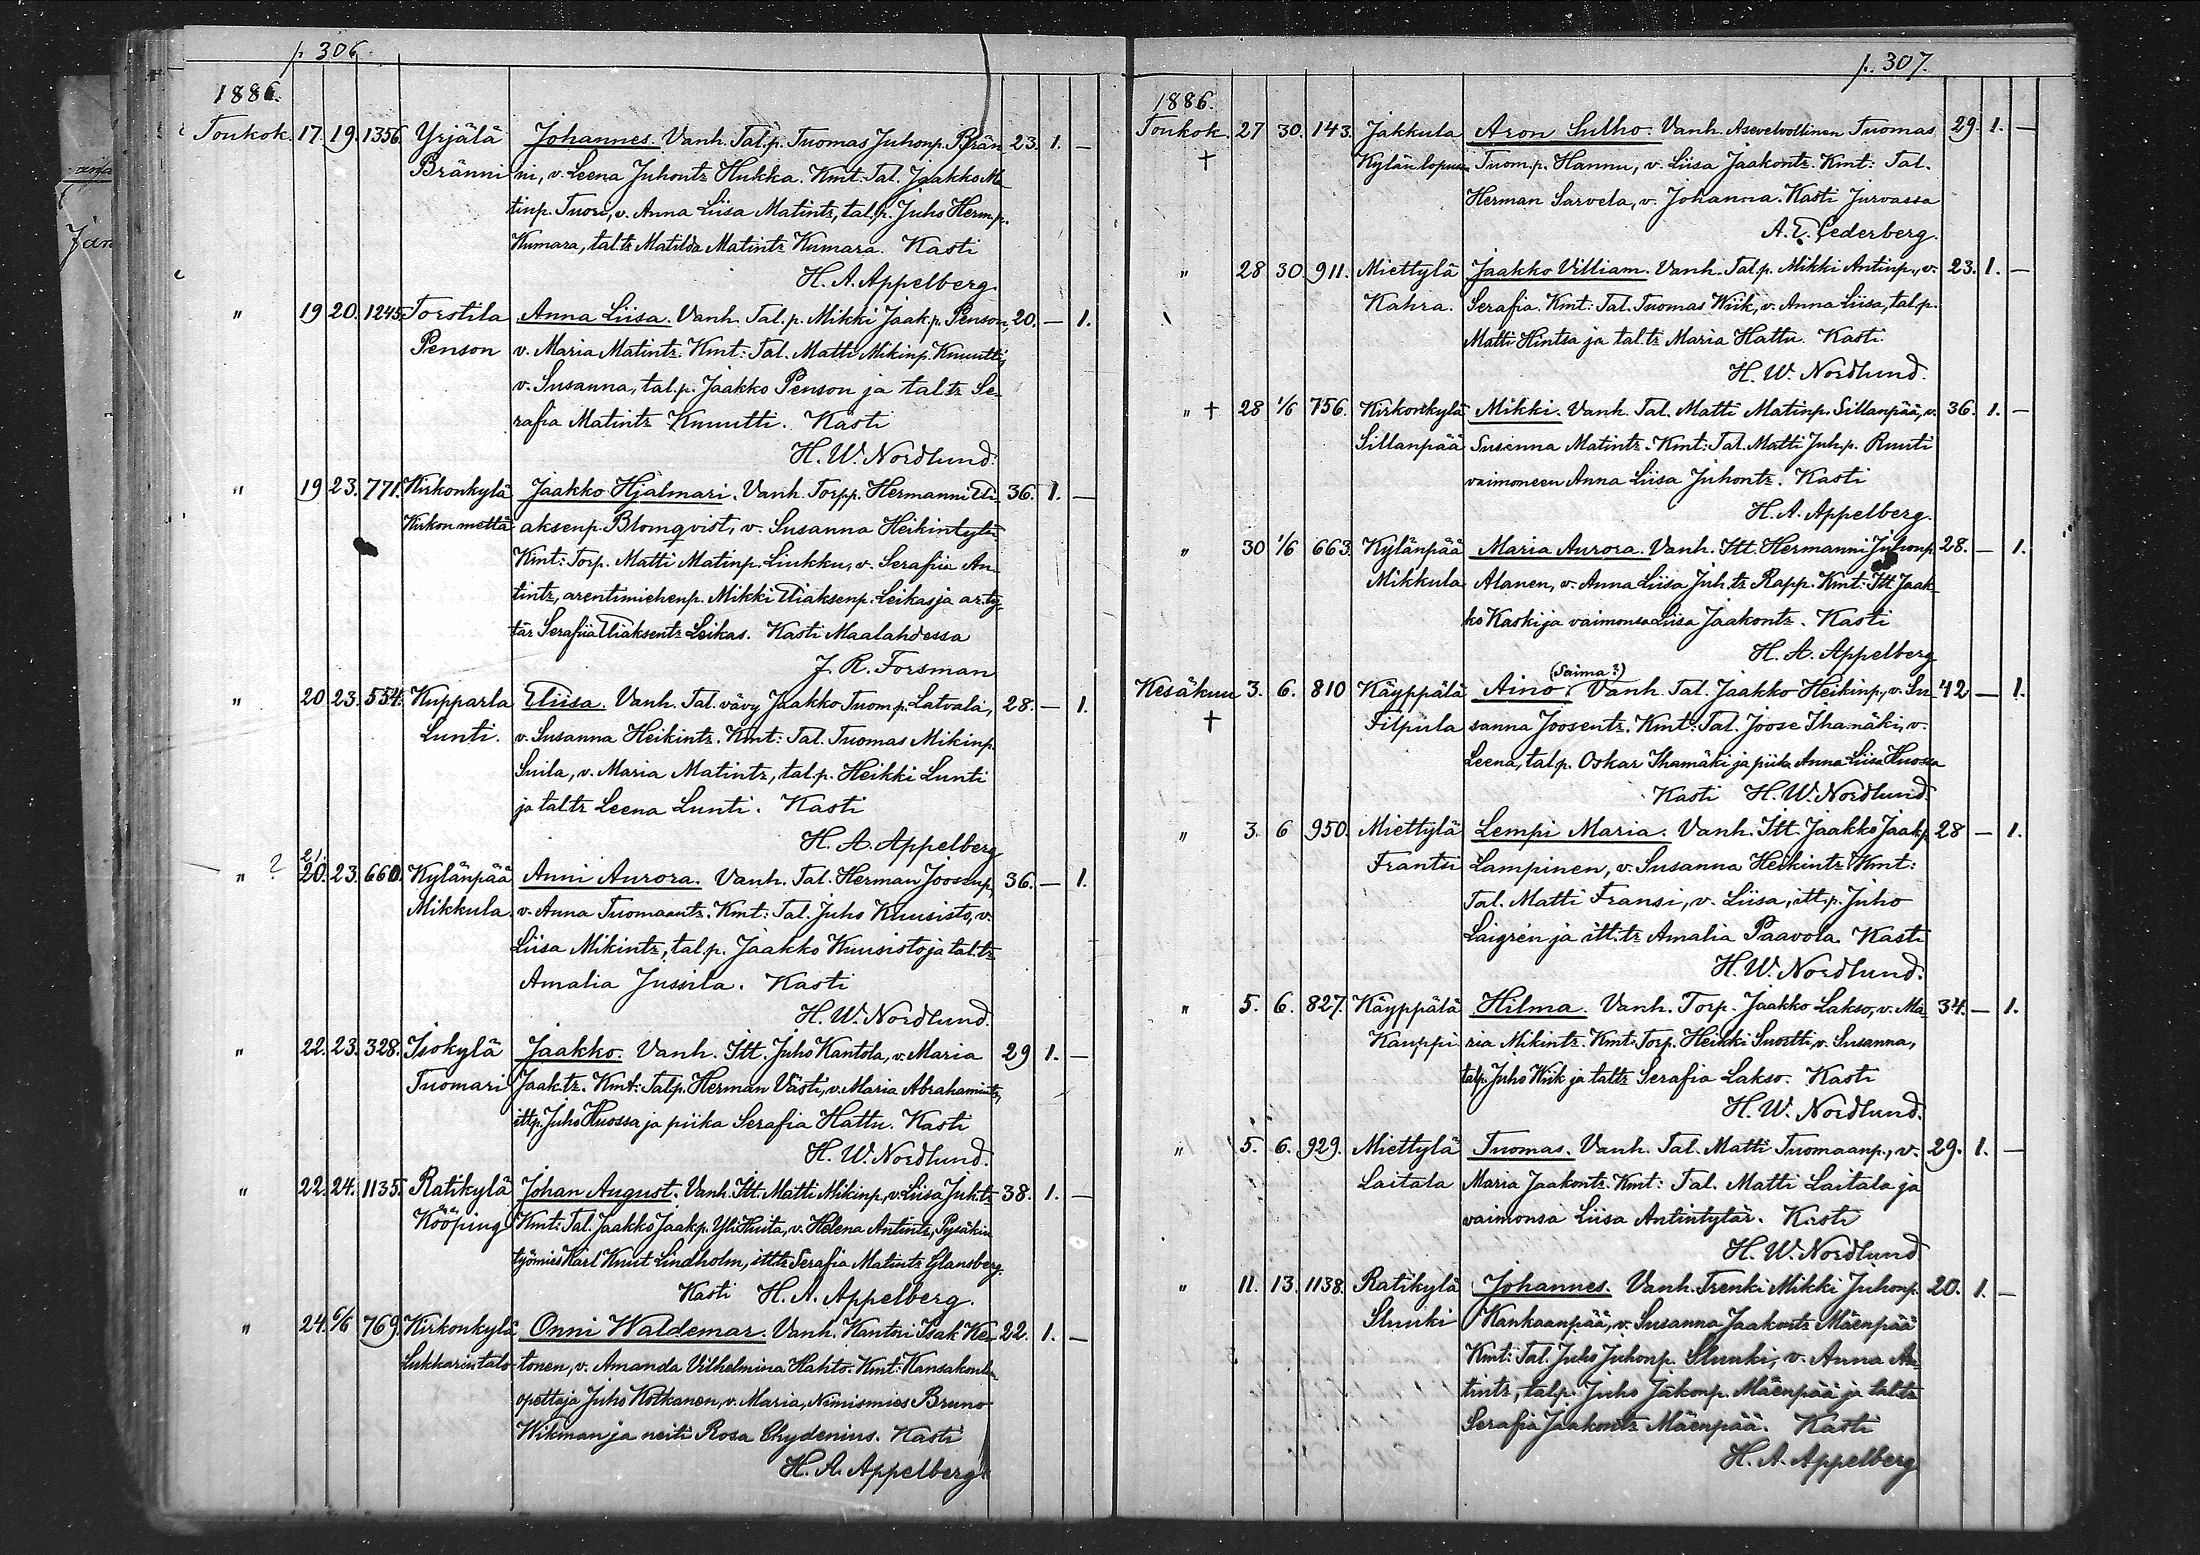 p. 306.
1886.
Toukok. 17. 19. 1356. Yrjälä Johannes. Vanh. Tal.p. Tuomas Juhonp. Brän- 23. 1. —
Bränni ni, v. Leena Juhontr Hukka. Kmt: Tal. Jaakko Ma-
tinp. Tuori, v. Anna Liisa Matintr, tal.p. Juho Herm.p.
Kumara, tal.tr Matilda Matintr Kumara. Kasti
H. A. Appelberg.
" 19 20. 1245. Torstila Anna Liisa. Vanh. Tal.p. Mikki Jaak.p. Penson, 20. — 1.
Penson v. Maria Matintr. Kmt: Tal. Matti Mikinp. Knuutti,
v. Susanna, tal.p. Jaakko Penson ja tal.tr Se-
rafia Matintr Knuutti. Kasti
H. W. Nordlund.
" 19 23. 771. Kirkonkylä Jaakko Hjalmari. Vanh. Torpp. Hermanni Eli- 36. 1. —
Kirkon mettä aksenp. Blomqvist, v. Susanna Heikintytär
Kmt: Torp. Matti Matinp. Liukku, v. Serafiia An-
tintr, arentimiehenp. Mikki Eliaksenp. Leikas ja ar.ty-
tär Serafiia Eliaksentr Leikas. Kasti Maalahdessa
J. R. Forsman
" 20 23. 554. Kupparla Eliisa. Vanh. Tal. vävy Jaakko Tuom.p. Latvala, 28. — 1.
Lunti. v. Susanna Heikintr. Kmt: Tal. Tuomas Mikinp.
Suila, v. Maria Matintr, tal.p. Heikki Lunti
ja tal.tr Leena Lunti. Kasti
H. A. Appelberg
21.
" ? 20. 23. 660. Kylänpää Anni Aurora. Vanh. Tal. Herman Joosenp., 36. — 1.
Mikkula. v. Anna Tuomaantr. Kmt: Tal. Juho Kuusisto, v.
Liisa Mikintr, tal.p. Jaakko Kuusisto ja tal.tr
Amalia Jussila. Kasti
H. W. Nordlund.
" 22. 23. 328. Isokylä Jaakko. Vanh. Itt. Juho Kantola, v. Maria 29 1. —
Tuomari Jaak.tr. Kmt: Talp. Herman Västi, v. Maria Abrahamintr,
ittp. Juho Huossa ja piika Serafia Hattu. Kasti
H. W. Nordlund.
" 22. 24. 1135. Ratikylä Johan August. Vanh. Itt. Matti Mikinp., v. Liisa Juh.tr 38. 1. —
Kööping Kmt: Tal. Jaakko Jaak.p. Yli Huita, v. Helena Antintr, Pysäkin
työmies Karl Knut Lindholm, itt.tr Serafia Matintr Glansberg.
Kasti H. A. Appelberg.
" 24. 6/6 769. Kirkonkylä Onni Waldemar. Vanh. Kanttori Isak Ke- 22. 1. —
Lukkarin talo tonen, v. Amanda Vilhelmina Hahto. Kmt: Kansakoulun
opettaja Juho Kotkanen, v. Maria, Nimismies Bruno
Wikman ja neiti Rosa Chydenius. Kasti
H. A. Appelberg
p. 307.
1886.
Toukok. 27 30. 143. Jakkula Aron Sulho. Vanh. Asevelvollinen Tuomas 29. 1. —
† Kylän lopussa Tuom.p. Hannu, v. Liisa Jaakontr. Kmt: Tal.
Herman Sarvela, v. Johanna. Kasti Jurvassa
A. E. Cederberg.
" 28 30. 911. Miettylä Jaakko Villiam. Vanh. Tal.p. Mikki Antinp., v. 23. 1. —
Kahra. Serafia. Kmt: Tal. Tuomas Wiik, v. Anna Liisa, tal.p.
Matti Hintsa ja tal.tr Maria Hattu. Kasti.
H. W. Nordlund.
" † 28 1/6 756. Kirkonkylä Mikki. Vanh. Tal. Matti Matinp. Sillanpää, v. 36. 1. —
Sillanpää Susanna Matintr. Kmt: Tal. Matti Juh.p. Ruusti
vaimoneen Anna Liisa Juhontr. Kasti
H. A. Appelberg.
" 30 1/6 663. Kylänpää Maria Aurora. Vanh. Itt. Hermanni Juhonp. 28. — 1.
Mikkula Alanen, v. Anna Liisa Juh.tr Rapp. Kmt: Itt Jaak-
ko Kaski ja vaimonsa Liisa Jaakontr. Kasti
H. A. Appelberg
(Saima?)
Kesäkuu 3. 6. 810 Käyppälä Aino. Vanh. Tal. Jaakko Heikinp., v. Su- 42 — 1.
† Filpula sanna Joosentr. Kmt: Tal. Joose Ihamäki, v.
Leena, tal.p. Oskar Ihamäki ja piika Anna Liisa Huossa
Kasti H. W. Nordlund.
" 3. 6 950. Miettylä Lempi Maria. Vanh. Itt. Jaakko Jaak.p. 28 — 1.
Frantsi Lampinen, v. Susanna Heikintr. Kmt:
Tal. Matti Fransi, v. Liisa, itt.p. Juho
Laigrén ja itt.tr Amalia Paavola. Kasti
H. W. Nordlund.
" 5. 6. 827. Käyppälä Hilma. Vanh. Torp. Jaakko Lakso, v. Ma- 34. — 1.
Kauppi ria Mikintr. Kmt: Torp. Heikki Suortti, v. Susanna,
talp. Juho Wiik ja taltr Serafia Lakso. Kasti
H. W. Nordlund.
" 5. 6. 929. Miettylä Tuomas. Vanh. Tal. Matti Tuomaanp., v. 29. 1. —
Laitala Maria Jaakontr. Kmt: Tal. Matti Laitala ja
vaimonsa Liisa Antintytär. Kasti
H. W. Nordlund
" 11. 13. 1138. Ratikylä Johannes. Vanh. Trenki Mikki Juhonp. 20. 1. —
Sluuki Kankaanpää, v. Susanna Jaakontr Mäenpää
Kmt: Tal. Juho Juhonp. Sluuki, v. Anna An-
tintr, talp. Juho Jaakonp. Mäenpää ja taltr
Serafia Jaakontr Mäenpää. Kasti
H. A. Appelberg